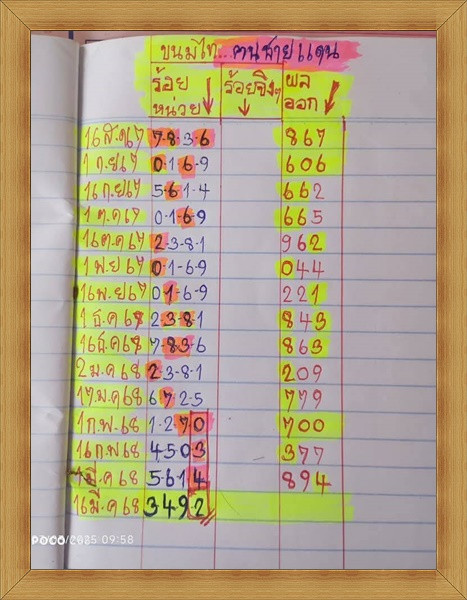 ขนมไท...คนชายแดน
ร้อย หน่วย ร้อยจิงๆ ผล ออก
16 ส.ค 67 7-8-3-6 867
1 ก.ย 67 0-1-6-9 606
16 ก.ย 67 5-6-1-4 662
1 ต.ค 67 0-1-6-9 665
16 ต.ค 67 2-3-8-1 962
1 พ.ย 67 0-1-6-9 044
16 พ.ย 67 0-1-6-9 221
1 ธ.ค 68 2-3-8-1 843
16 ธ.ค 68 7-83-6 863
2 ม.ค 68 2-3-8-1 209
17 ม.ค 68 6 7 2-5 779
1 ก.พ 68 1-2-70 700
16 ก.พ 68 4503 377
1 มี.ค 68 5-614 894
16 มี.ค 68 3492
POCO/2025-09:58